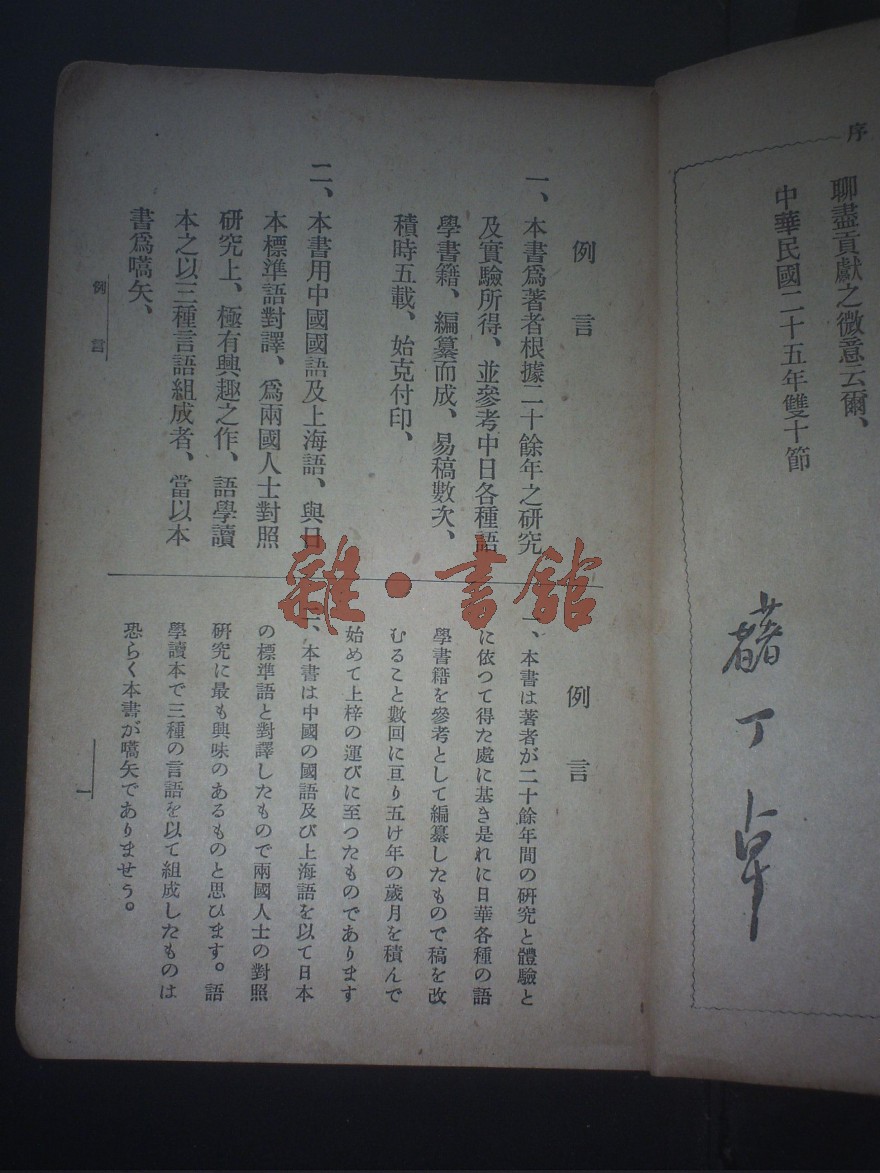 序
聊盡貢獻之微意云爾、
中華民國二十五年雙十節
著丁卓
例言
一、本書爲著者根據二十餘年之研究
及實驗所得、並參考中日各種語
學書籍、編纂而成、易稿數次、
積時五載、始克付印、
二、本書用中國國語及上海語、與日
本標準語對譯、爲兩國人士對照
研究上、極有興趣之作、語學讀
本之以三種言語組成者、當以本
書爲嚆矢、
例言
一、本書は著者が二十餘年間の硏究と體驗と
に依つて得た處に基き是れに日華各種の語
學書籍を參考として編纂したもので稿を改
むること數回に亘り五け年の歲月を積んで
始めて上梓の運びに至つたものであります
、本書は中國の國語及び上海語を以て日本
の標準語と對譯したもので兩國人士の對照
硏究に最も興味のあるものと思ひます。語
學讀本で三種の言語を以て組成したものは
恐らく本書が嚆矢でありませう。
例言
一
雜·書館